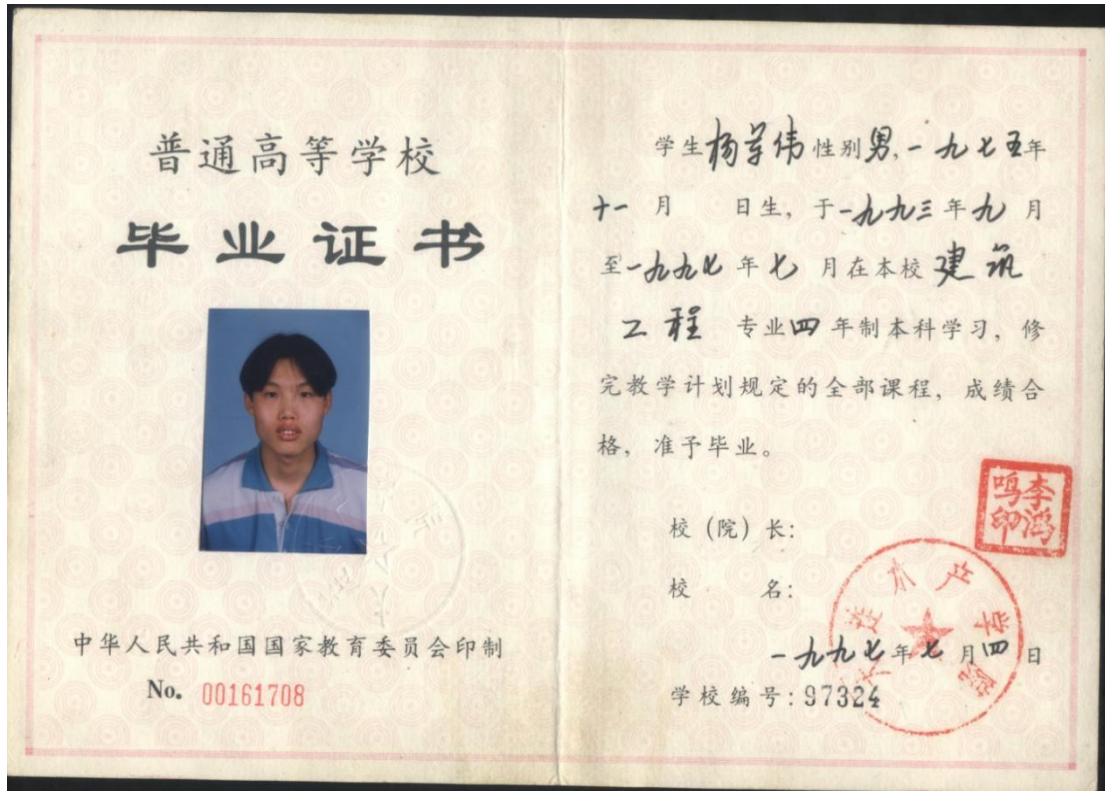 普通高等学校
毕业证书
中华人民共和国国家教育委员会印制
No. 00161708
学生杨军伟性别男,一九七五年
十一月 日生, 于一九九三年九月
至一九九七年七月在本校建筑
工程专业四年制本科学习, 修
完教学计划规定的全部课程, 成绩合
格, 准予毕业。
李鸿
鸣印
校(院)长:
大连水产学院
校 名:
一九九七年七月四日
学校编号:97324